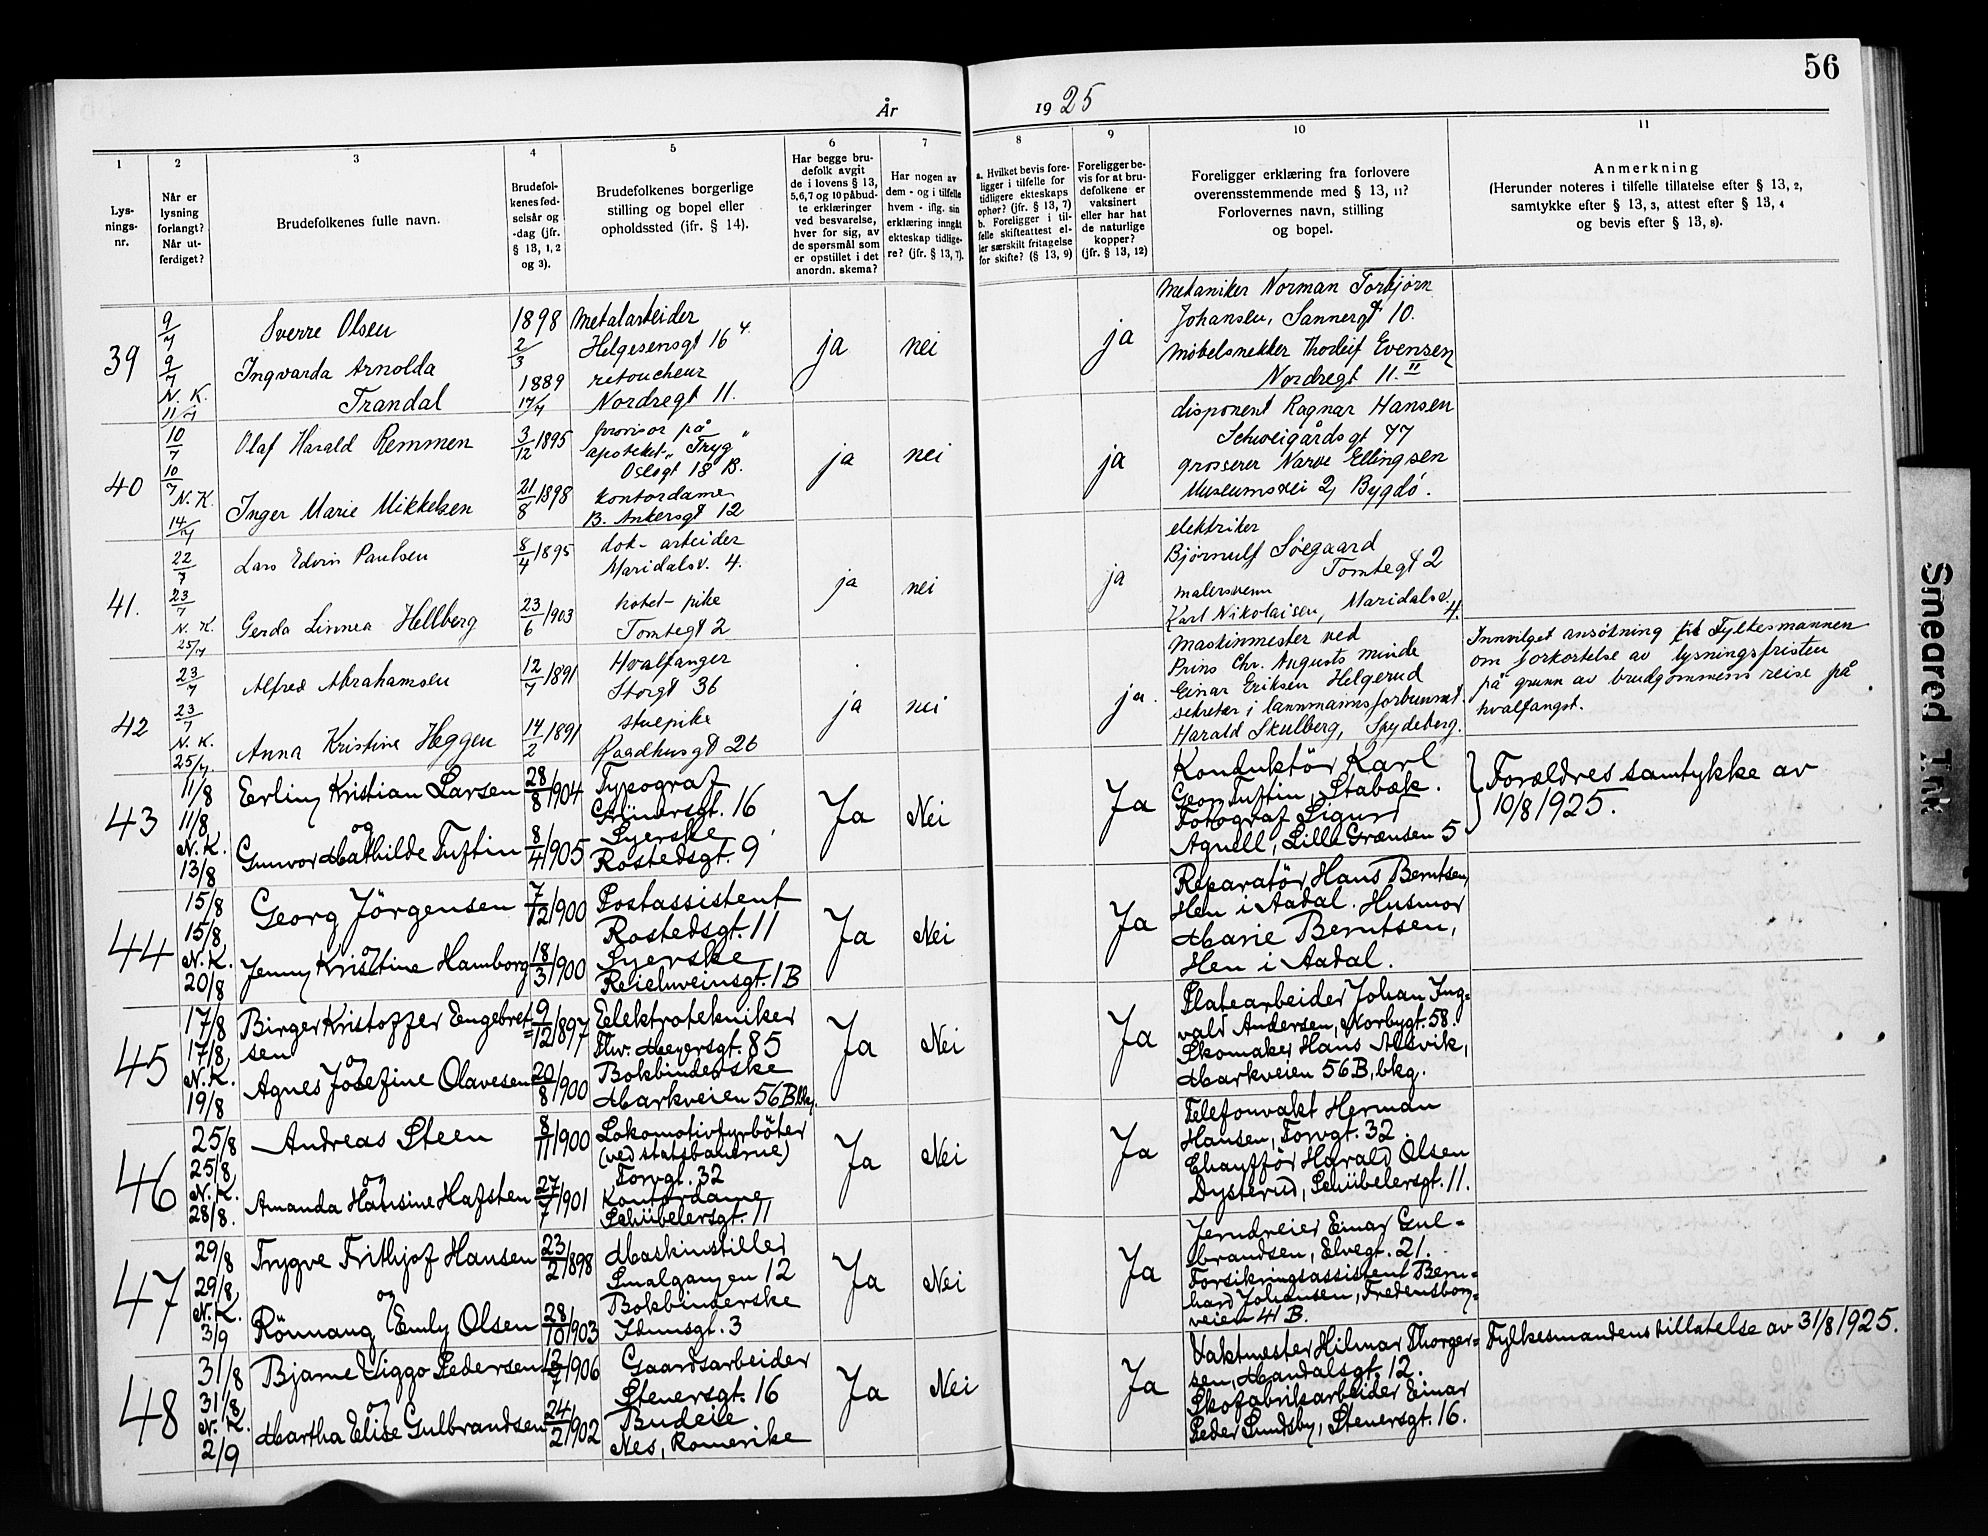 56
År
1925
1
2
3
4
5
6
7
8
9
10
11
Lys-
nings-
nr.
Når er
lysning
forlangt?
Når ut-
ferdiget?
Brudefolkenes fulle navn.
Brudefol-
kenes fød-
selsår og
-dag (jfr.
§ 13, 1, 2
og 3).
Brudefolkenes borgerlige
stilling og bopel eller
opholdssted (jfr. § 14).
Har begge bru-
defolk avgit
de i lovens § 13,
5,6,7 og 10 påbud-
te erklæringer
ved besvarelse,
hver for sig, av
de spørsmål som
er opstillet i det
anordn. skema?
Har nogen av
dem - og i tilfelle
hvem - iflg. sin
erklæring inngåt
ekteskap tidlige-
re? (jfr. § 13, 7).
a. Hvilket bevis fore-
ligger i tilfelle for
tidligere ekteskaps
ophør? (jfr. § 13, 7)
b. Foreligger i til-
felle skifteattest el-
ler særskilt fritagelse
for skifte? (§ 13, 9)
Foreligger be-
vis for at bru-
defolkene er
vaksinert
eller har hat
de naturlige
kopper?
(jfr. § 13, 12)
Foreligger erklæring fra forlovere
overensstemmende med § 13, 11?
Forlovernes navn, stilling
og bopel.
Anmerkning
(Herunder noteres i tilfelle tillatelse efter § 13, 2,
samtykke efter § 13, 3, attest efter § 13, 4
og bevis efter § 13, 8).
39
9/7
9/7
N. K.
11/7
Sverre Olsen
Ingvarda Arnolda
Trandal
1898
2/3
1889
17/7
Metalarbeider
Helgesensgt 16 4.
retoucheur
Nordregt 11.
ja
nei
ja
Mekaniker Norman Torbjørn
Johansen, Sannergt 10.
Møbelsnekker Thorleif Evensen
Nordregt 11. II
40
10/7
10/7
N. K.
14/7
Olaf Harald Remmen
Inger Marie Mikkelsen
3/12 1895
21/8 1898
provisor på
apoteket „Tryg"
Oslogt 18 B.
kontordame
B. Ankersgt 12
ja
nei
ja
disponent Ragnar Hansen
Schweigårdsgt 77
grosserer Narve Ellingsen
Museumsvei 2, Bygdö.
41.
22/7
23/7
N. K.
25/7
Lars Edvin Paulsen
Gerda Linnea Hellberg
8/4 1895
23/6 1903
dok- arbeider
Maridalsv. 4.
hotel- pike
Tomtegt 2
ja
nei
ja
elektriker
Bjørnulf Söegaard
Tomtegt 2
malersvenn
Karl Nikolaisen, Maridalsv 4.
42
23/7
23/7
N. K.
25/7.
Alfred Abrahamsen
Anna Kristine Heggen
12/7 1891
14/2 1891
Hvalfanger
Storgt 36
stuepike
Raadhusgt 26
ja
nei
ja.
Maskinmester ved
Prins Chr. Augusts minde
Einar Eriksen Helgerud
sekretær i lannmannsforbunnet
Harald Skulberg, Spydeberg.
Innvilget ansökning fra Fylkesmannen
om forkortelse av lysningsfristen
på grunn av brudgommens reise på
hvalfangst.
43
11/8
11/8
N. K.
13/8
Erling Kristian Larsen
og
Gunvor Mathilde Tuftin
28/8 1904
8/4 1905
Typograf
Grünersgt. 16
Syerske
Rostedsgt. 9
Ja
Nei
Ja
Konduktör Karl
Georg Tuftin, Stabæk.
Fotograf Sigurd
Agnell, Lille Grænsen 5
Forældres samtykke av
10/8 1925.
44
15/8
15/8
N. K.
20/8
Georg Jörgensen
og
Jenny Kristine Hamborg
7/12 1900
18/3 1900
Postassistent
Rostedsgt. 11
Syerske
Reichweinsgt. 1 B
Ja
Nei
Ja
Reparatör Hans Berntsen,
Hen i Aadal. Husmor
Marie Berntsen,
Hen i Aadal.
45
17/8
17/8
N. K.
19/8
Birger Kristoffer Engebret=
sen
og
Agnes Josefine Olavesen
9/12 1897
20/8 1900
Elektrotekniker
Thv. Meyersgt. 85
Bokbinderske
Markveien 56 B, bkg.
Ja
Nei
Ja
Platearbeider Johan Ing=
vald Andersen, Norbygt. 58.
Skomaker Hans Alsvik,
Markveien 56 B, bkg.
46
25/8
25/8
N. K.
28/8.
Andreas Steen
og
Amanda Hansine Hafsten
8/11 1900
27/7 1901
Lokomotivfyrböter
(ved statsbanerne)
Torvgt. 32
Kontordame
Schübelersgt. 11
Ja
Nei
Ja
Telefonvakt Herman
Hansen, Torvgt. 32.
Chaufför Harald Olsen
Dysterud, Schübelersgt. 11.
47
29/8
29/8
N. K.
3/9
Trygve Frithjof Hansen
og
Rönnaug Emly Olsen
23/2 1898
28/10 1903
Maskinstiller
Smalgangen 12
Bokbinderske
Idunsgt. 3
Ja
Nei
Ja
Jerndreier Einar Gul=
brandsen, Elvegt. 21.
Forsikringsassistent Bern=
hard Johansen, Fredensborg=
veien 41 B.
48
31/8
31/8
N. K.
2/9
Bjarne Viggo Pedersen
og
Martha Elise Gulbrandsen
1906
24/2 1902
Gaardsarbeider
Stenersgt. 16
Budeie
Nes, Romerike
Ja
Nei
Ja
Vaktmester Hilmar Thorger=
sen, Mandalsgt. 12.
Skofabrikarbeider Einar
Peder Sundsby, Stenersgt. 16.
Fylkesmandens tillatelse av 31/8 1925.
Smeared Ink